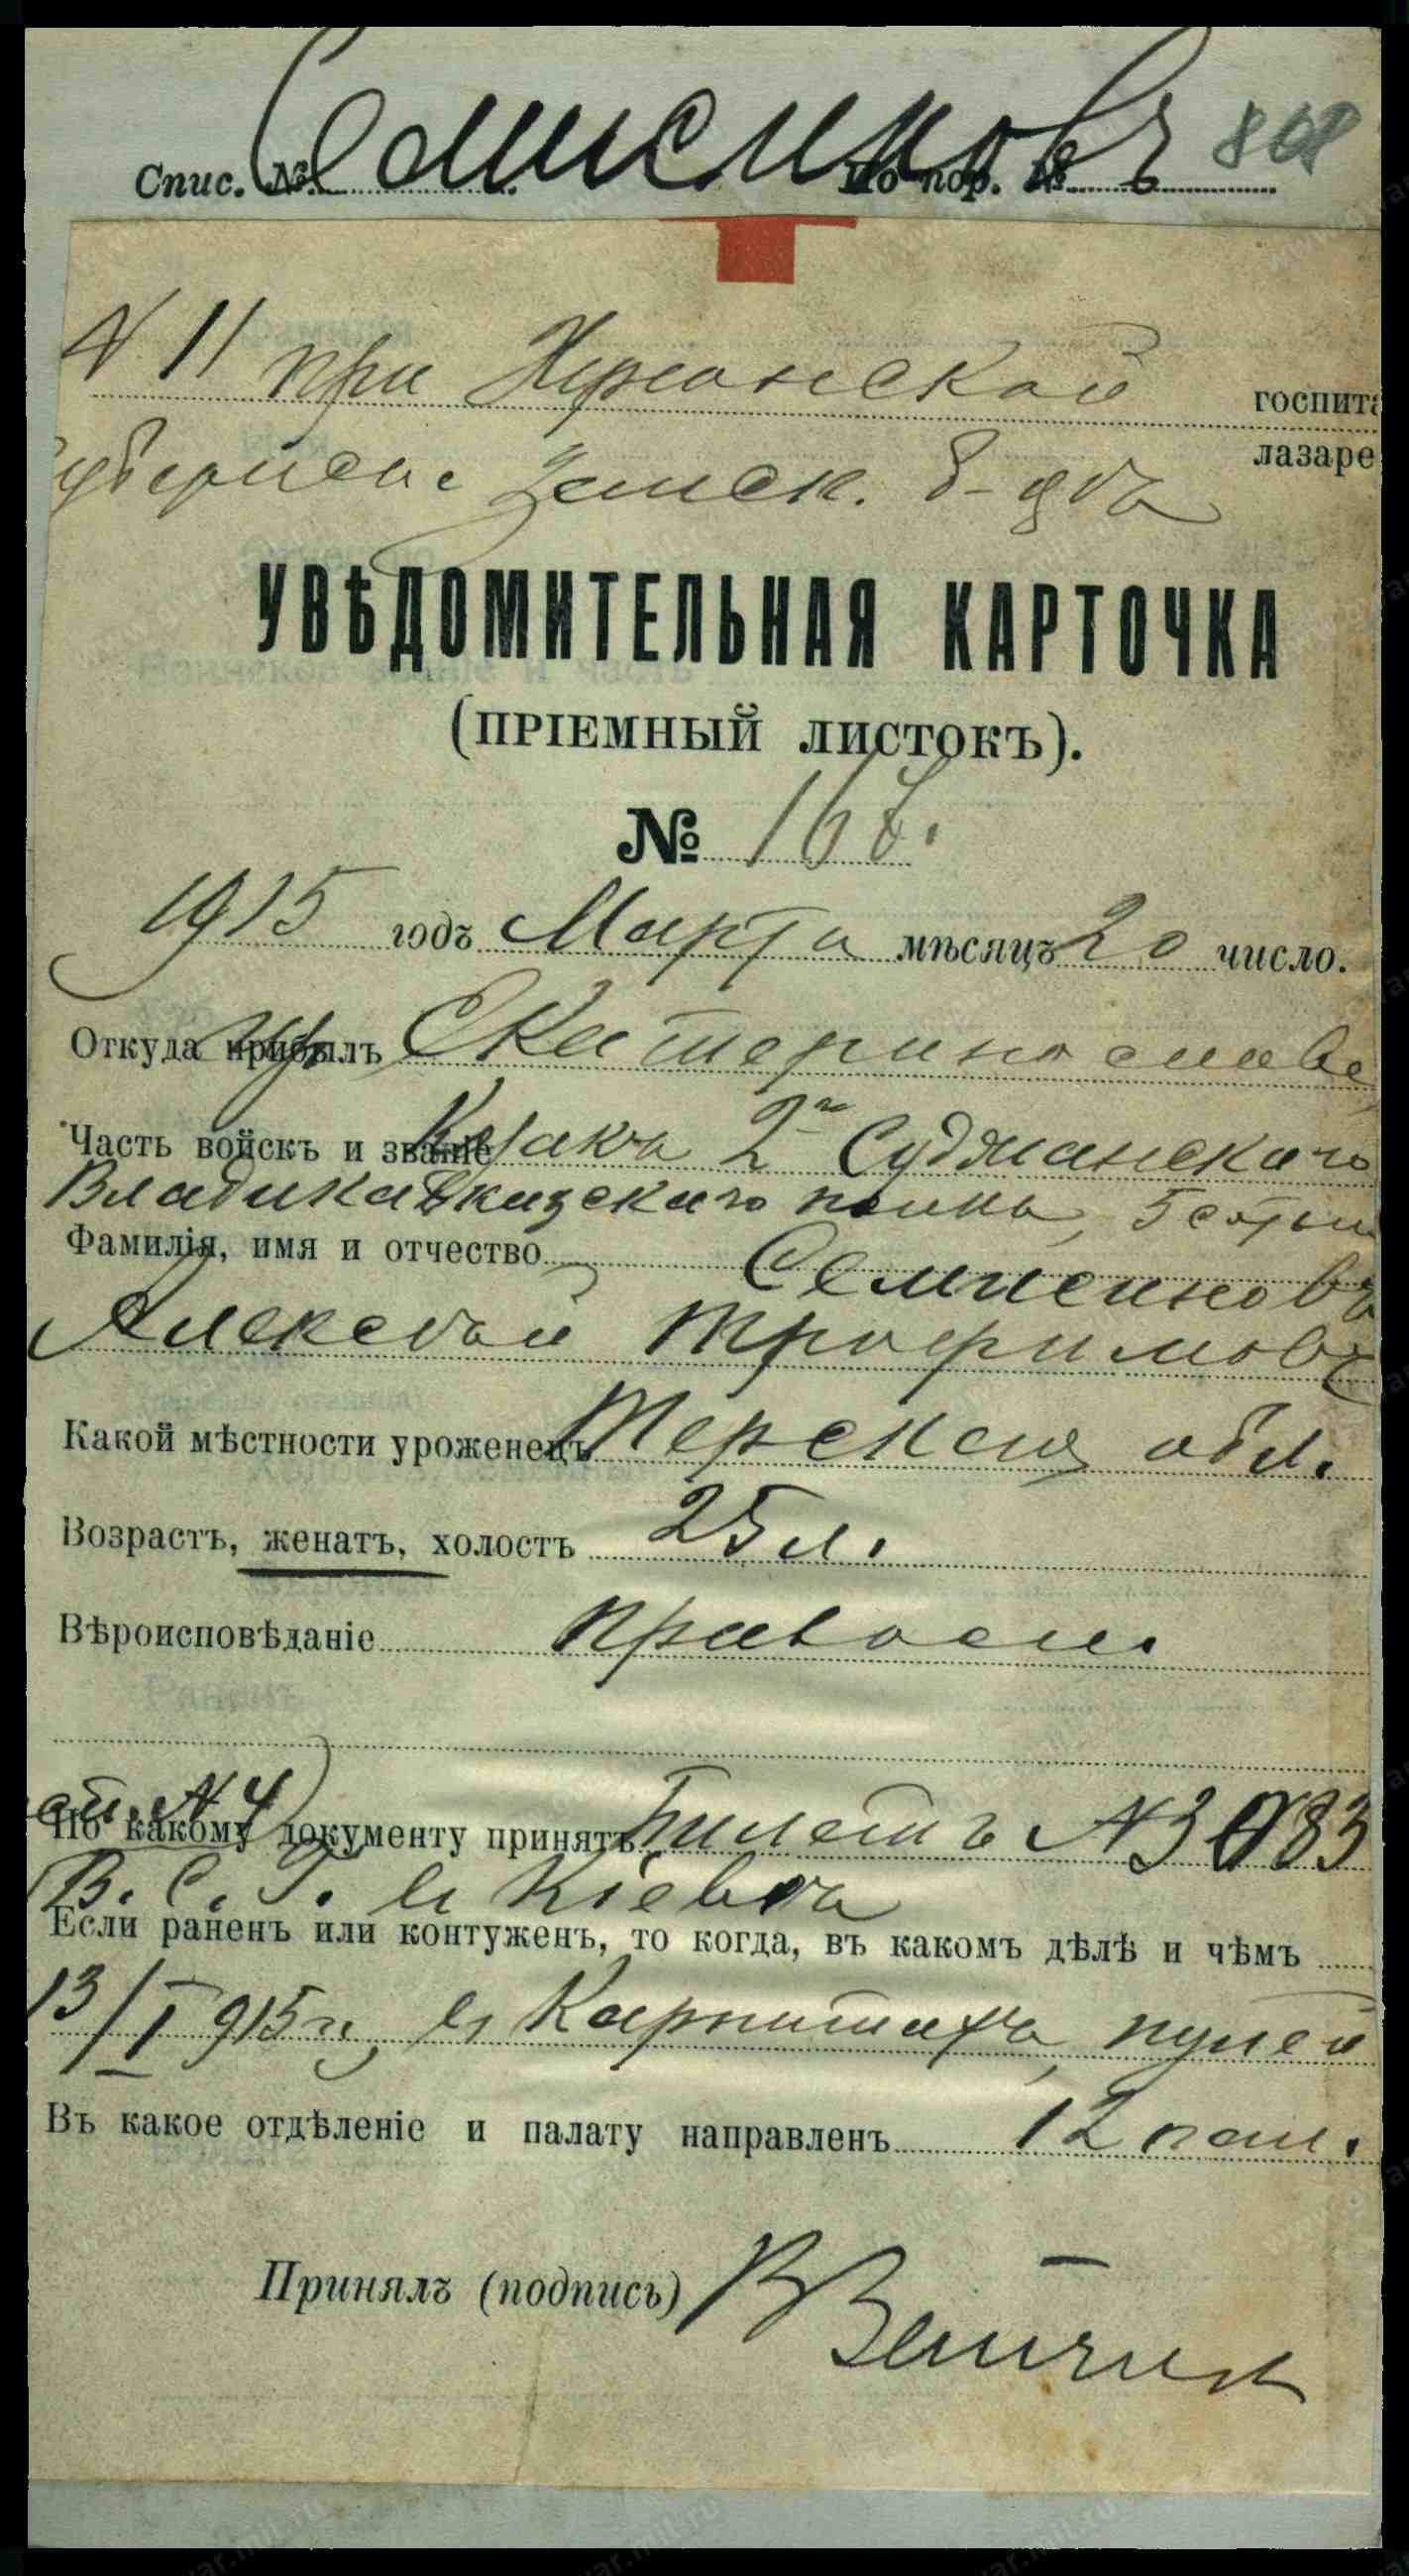 Спис. № По пор. №
868
N 11 при Херсонской
госпита
Губернск. Земск. б-цѣ
лазаре
УВѢДОМИТЕЛЬНАЯ КАРТОЧКА
(ПРІЕМНЫЙ ЛИСТОКЪ).
№ 167.
1915 годъ Марта мѣсяцъ 20 число.
Откуда прибылъ изъ Екатеринослава
Часть войскъ и званіе Казакъ 2го
Владикавказскаго полка, 5 сотни
Фамилія, имя и отчество
Алексѣй Трофимов
Какой мѣстности уроженецъ Терской обл.
Возрастъ, женатъ, холостъ 25 л.
Вѣроисповѣданіе правосл.
По какому документу принятъ Билетъ N
N 4
В. С. Г. в Кіевѣ
Если раненъ или контуженъ, то когда, въ какомъ дѣлѣ и чѣмъ
13/I 915 г., в Карпатахъ, пулей
Въ какое отдѣленіе и палату направленъ 12 пал.
Принялъ (подпись)